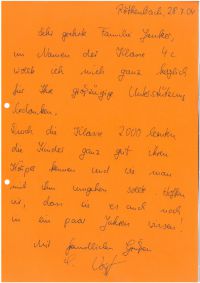 Röthenbach, 28.7.04
Sehr geehrte Familie Junker,
im Namen der Klasse 4c
wollte ich mich ganz herzlich
für Ihre großzügige Unterstützung
bedanken.
Durch die Klasse 2000 lernten
die Kinder ganz gut ihren
Körper kennen und wie man
mit ihm umgehen sollte. Hoffen
wir, dass sie es auch noch
in ein paar Jahren wissen!
Mit freundlichen Grüßen